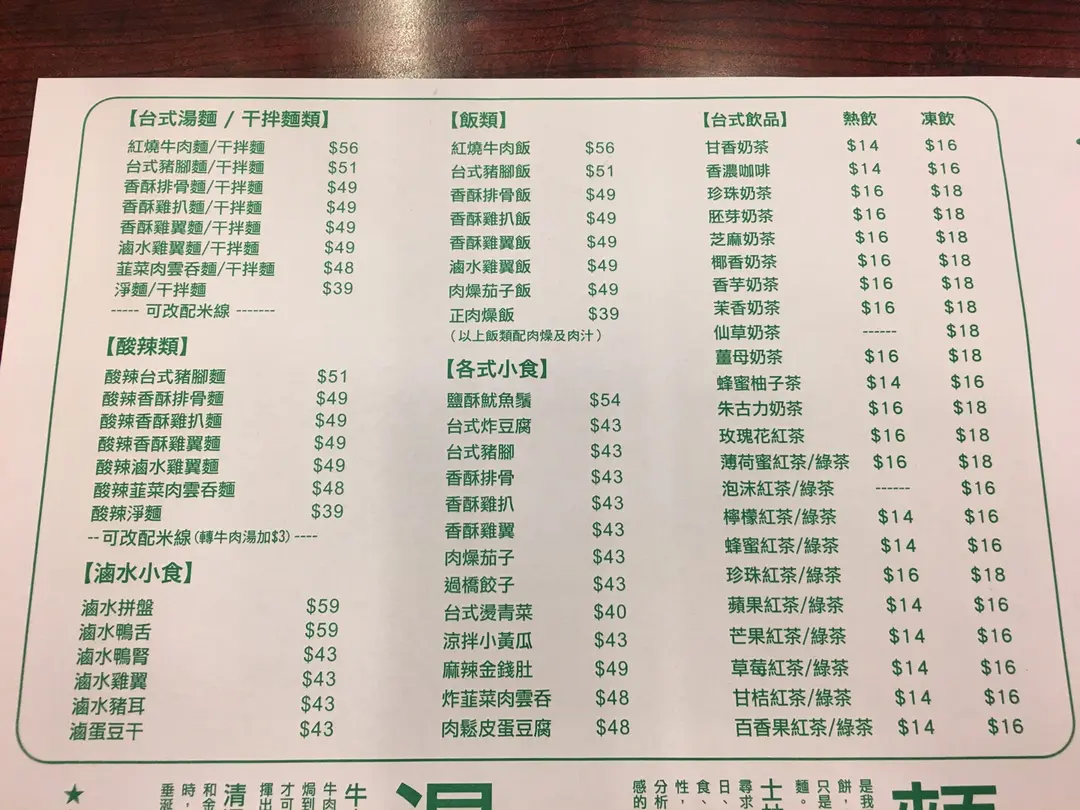 【台式湯麵 / 干拌麵類】
紅燒牛肉麵/干拌麵 $56
台式豬腳麵/干拌麵 $51
香酥排骨麵/干拌麵 $49
香酥雞扒麵/干拌麵 $49
香酥雞翼麵/干拌麵 $49
滷水雞翼麵/干拌麵 $49
韮菜肉雲吞麵/干拌麵 $48
淨麵/干拌麵 $39
----- 可改配米線 -------
【酸辣類】
酸辣台式豬腳麵 $51
酸辣香酥排骨麵 $49
酸辣香酥雞扒麵 $49
酸辣香酥雞翼麵 $49
酸辣滷水雞翼麵 $49
酸辣韮菜肉雲吞麵 $48
酸辣淨麵 $39
--可改配米線(轉牛肉湯加$3)----
【滷水小食】
滷水拼盤 $59
滷水鴨舌 $59
滷水鴨腎 $43
滷水雞翼 $43
滷水豬耳 $43
滷蛋豆干 $43
【飯類】
紅燒牛肉飯 $56
台式豬腳飯 $51
香酥排骨飯 $49
香酥雞扒飯 $49
香酥雞翼飯 $49
滷水雞翼飯 $49
肉燥茄子飯 $49
正肉燥飯 $39
(以上飯類配肉燥及肉汁)
【各式小食】
鹽酥魷魚鬚 $54
台式炸豆腐 $43
台式豬腳 $43
香酥排骨 $43
香酥雞扒 $43
香酥雞翼 $43
肉燥茄子 $43
過橋餃子 $43
台式燙青菜 $40
涼拌小黃瓜 $43
麻辣金錢肚 $49
炸韮菜肉雲吞 $48
肉鬆皮蛋豆腐 $48
【台式飲品】 熱飲 凍飲
甘香奶茶 $14 $16
香濃咖啡 $14 $16
珍珠奶茶 $16 $18
胚芽奶茶 $16 $18
芝麻奶茶 $16 $18
椰香奶茶 $16 $18
香芋奶茶 $16 $18
茉香奶茶 $16 $18
仙草奶茶 ------ $18
薑母奶茶 $16 $18
蜂蜜柚子茶 $14 $16
朱古力奶茶 $16 $18
玫瑰花紅茶 $16 $18
薄荷蜜紅茶/綠茶 $16 $18
泡沫紅茶/綠茶 ------ $16
檸檬紅茶/綠茶 $14 $16
蜂蜜紅茶/綠茶 $14 $16
珍珠紅茶/綠茶 $16 $18
蘋果紅茶/綠茶 $14 $16
芒果紅茶/綠茶 $14 $16
草莓紅茶/綠茶 $14 $16
甘桔紅茶/綠茶 $14 $16
百香果紅茶/綠茶 $14 $16
是我
餅
只是
麵。
尋求
日、
食、
性,
分析
感的
牛肉
焗到
才可
揮出
清
和金
時,
垂涎